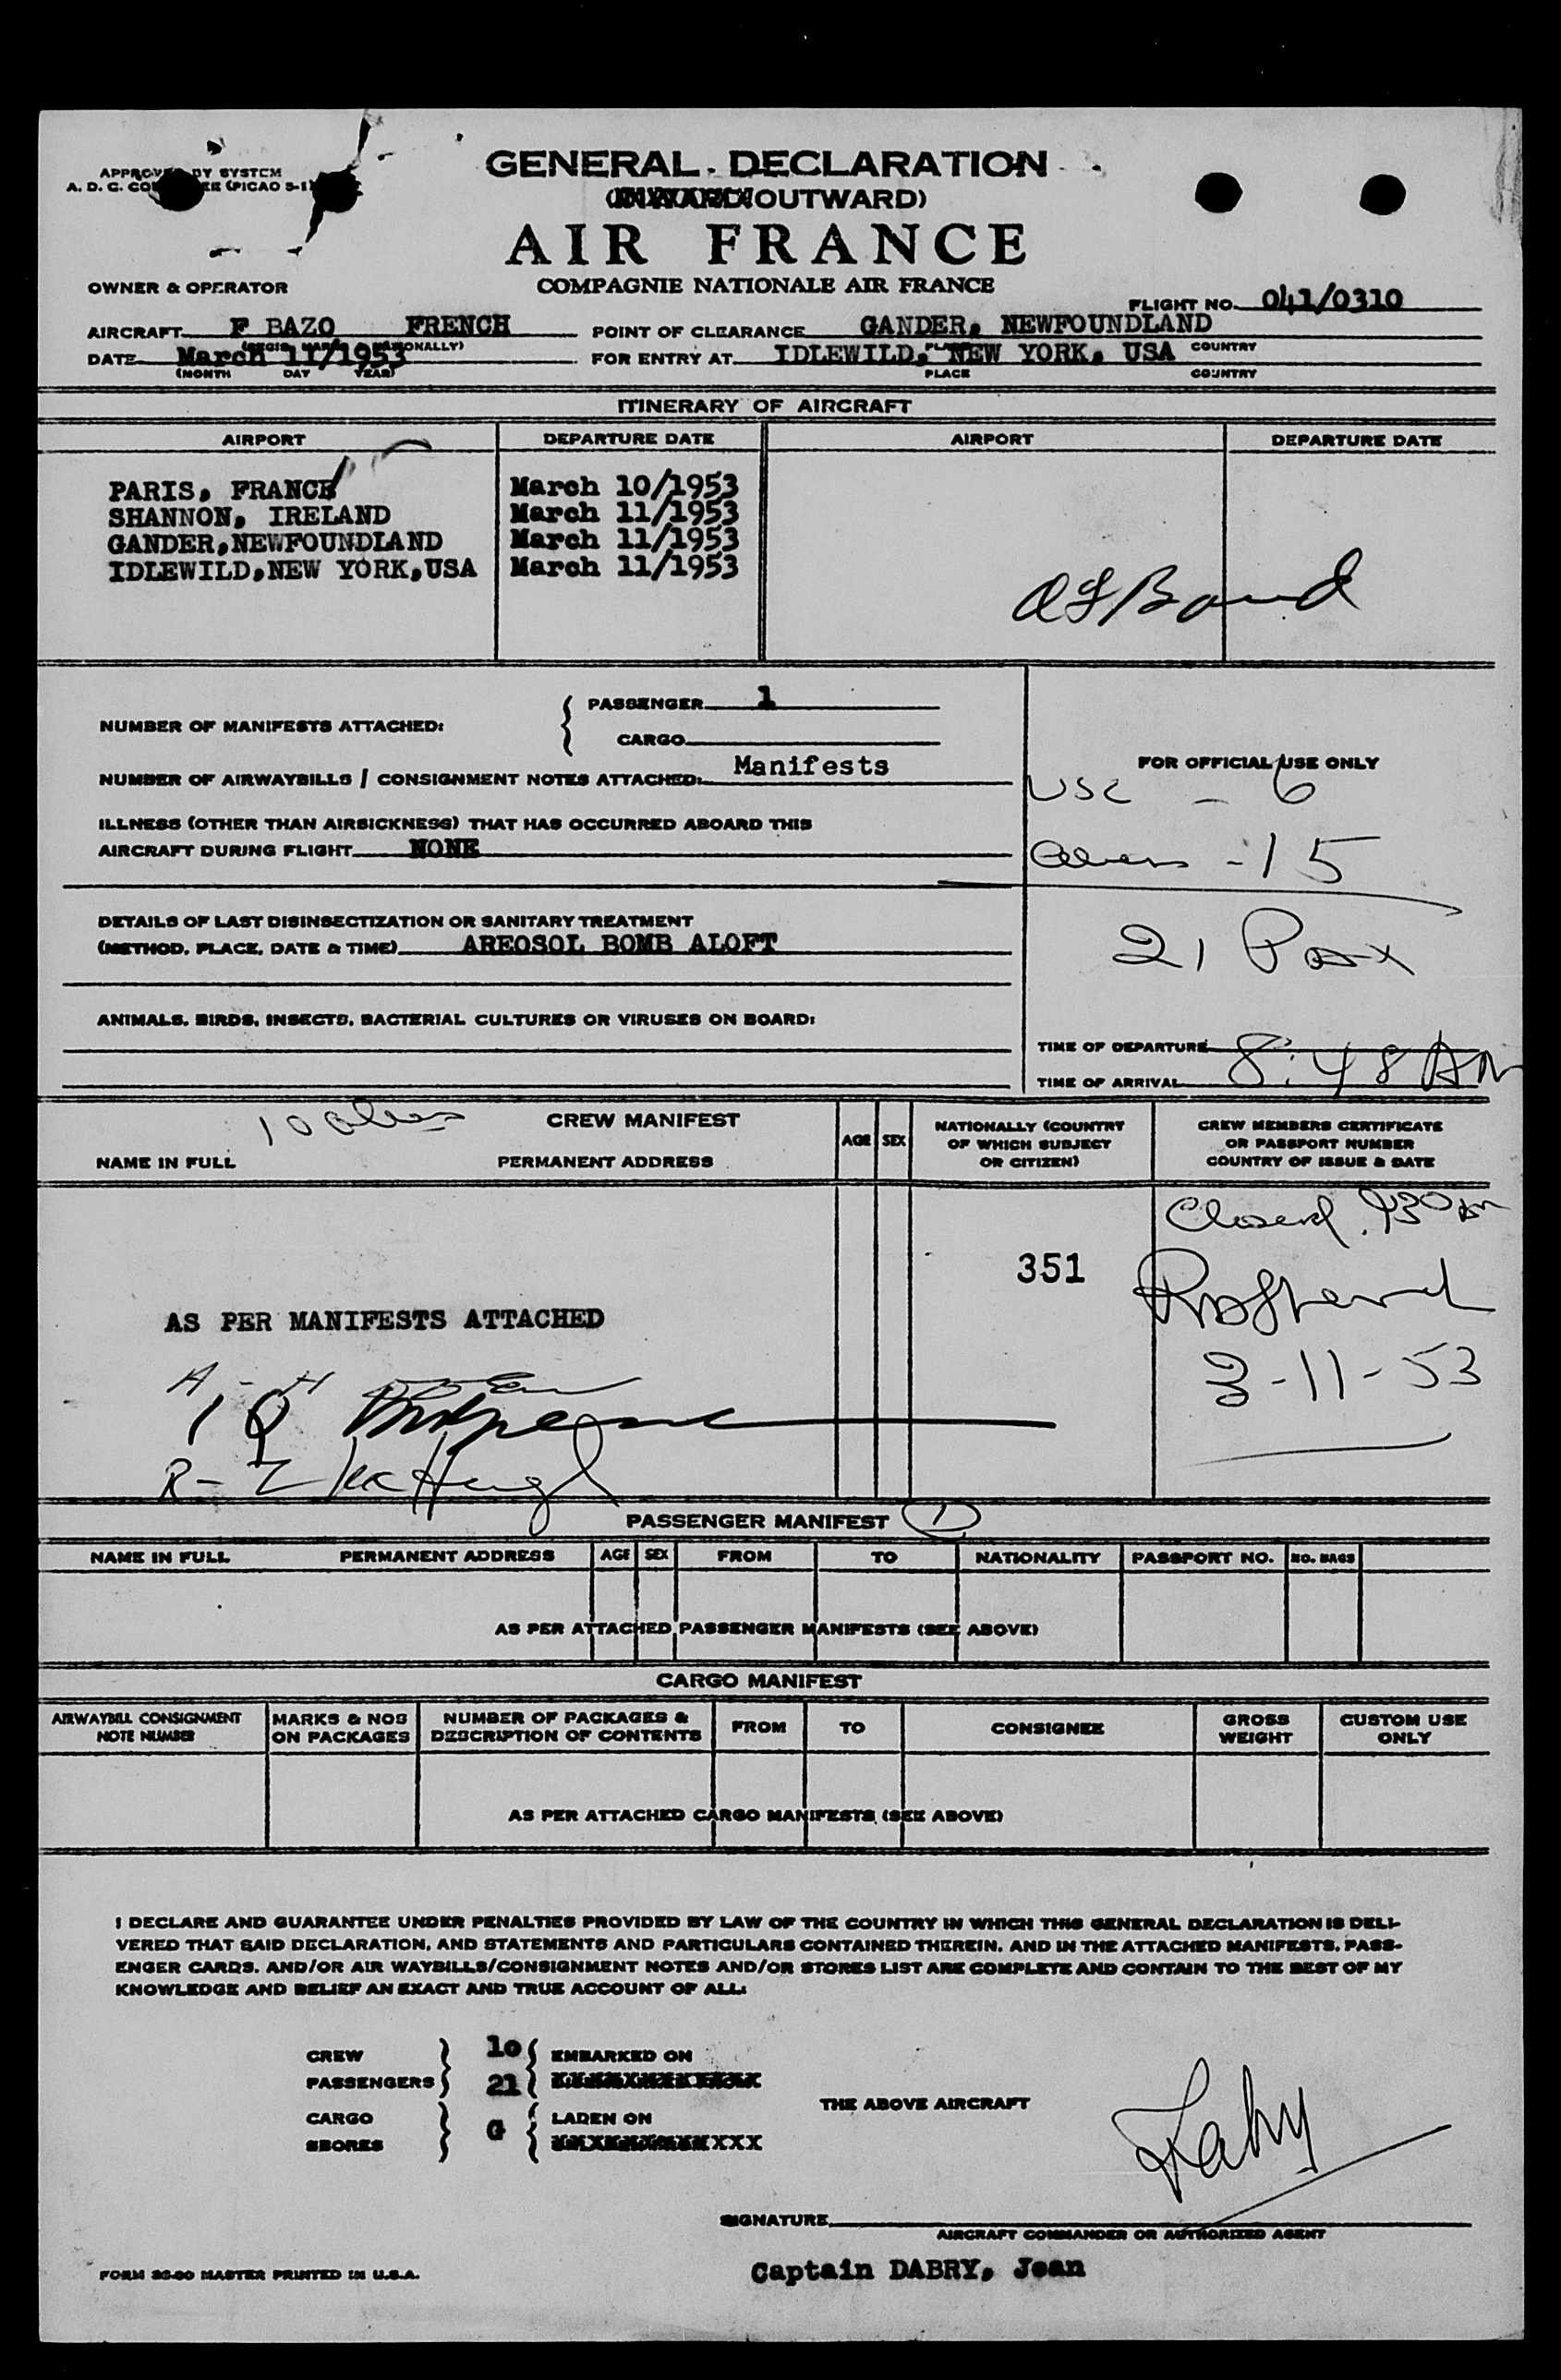 GENERAL DECLARATION
APPROVED BY SYSTEM
A. D. C. (PICAO 5-1)
OUTWARD)
AIR FRANCE
COMPAGNIE NATIONALE AIR FRANCE
OWNER & OPERATOR
FLIGHT NO. 041/0310
AIRCRAFT F BAZO FRENCH POINT OF CLEARANCE GANDER, NEWFOUNDLAND
PLACE COUNTRY
DATE March 11/1953 FOR ENTRY AT IDLEWILD, NEW YORK, USA
(MONTH DAY YEAR) PLACE COUNTRY
ITINERARY OF AIRCRAFT
AIRPORT DEPARTURE DATE AIRPORT DEPARTURE DATE
PARIS, FRANCE March 10/1953
SHANNON, IRELAND March 11/1953
GANDER,NEWFOUNDLAND March 11/1953
IDLEWILD,NEW YORK,USA March 11/1953
NUMBER OF MANIFESTS ATTACHED: PASSENGER 1
CARGO
NUMBER OF AIRWAYBILLS / CONSIGNMENT NOTES ATTACHED: Manifests
FOR OFFICIAL USE ONLY
USC - 6
ILLNESS (OTHER THAN AIRSICKNESS) THAT HAS OCCURRED ABOARD THIS
AIRCRAFT DURING FLIGHT NONE
Aliens - 15
DETAILS OF LAST DISINSECTIZATION OR SANITARY TREATMENT
(METHOD, PLACE, DATE & TIME) AREOSOL BOMB ALOFT
21 Pax
ANIMALS, BIRDS, INSECTS, BACTERIAL CULTURES OR VIRUSES ON BOARD:
TIME OF DEPARTURE
TIME OF ARRIVAL 8:48 AM
10 aliens
CREW MANIFEST
NAME IN FULL PERMANENT ADDRESS AGE SEX
NATIONALLY (COUNTRY
OF WHICH SUBJECT
OR CITIZEN)
CREW MEMBERS CERTIFICATE
OR PASSPORT NUMBER
COUNTRY OF ISSUE & DATE
Closed 930 am
351
AS PER MANIFESTS ATTACHED
3-11-53
A - H
R - Z
PASSENGER MANIFEST 1
NAME IN FULL PERMANENT ADDRESS AGE SEX FROM TO NATIONALITY PASSPORT NO. NO. BAGS
AS PER ATTACHED PASSENGER MANIFESTS (SEE ABOVE)
CARGO MANIFEST
AIRWAYBILL CONSIGNMENT
NOTE NUMBER
MARKS & NOS
ON PACKAGES
NUMBER OF PACKAGES &
DESCRIPTION OF CONTENTS
FROM TO CONSIGNEE
GROSS
WEIGHT
CUSTOM USE
ONLY
AS PER ATTACHED CARGO MANIFESTS (SEE ABOVE)
I DECLARE AND GUARANTEE UNDER PENALTIES PROVIDED BY LAW OF THE COUNTRY IN WHICH THIS GENERAL DECLARATION IS DELI-
VERED THAT SAID DECLARATION, AND STATEMENTS AND PARTICULARS CONTAINED THEREIN, AND IN THE ATTACHED MANIFESTS, PASS-
ENGER CARDS, AND/OR AIR WAYBILLS/CONSIGNMENT NOTES AND/OR STORES LIST ARE COMPLETE AND CONTAIN TO THE BEST OF MY
KNOWLEDGE AND BELIEF AN EXACT AND TRUE ACCOUNT OF ALL:
CREW 10 EMBARKED ON
PASSENGERS 21
THE ABOVE AIRCRAFT
CARGO G LADEN ON
SBORES
SIGNATURE
AIRCRAFT COMMANDER OR AUTHORIZED AGENT
Captain DABRY, Jean
FORM 36-60 MASTER PRINTED IN U.S.A.